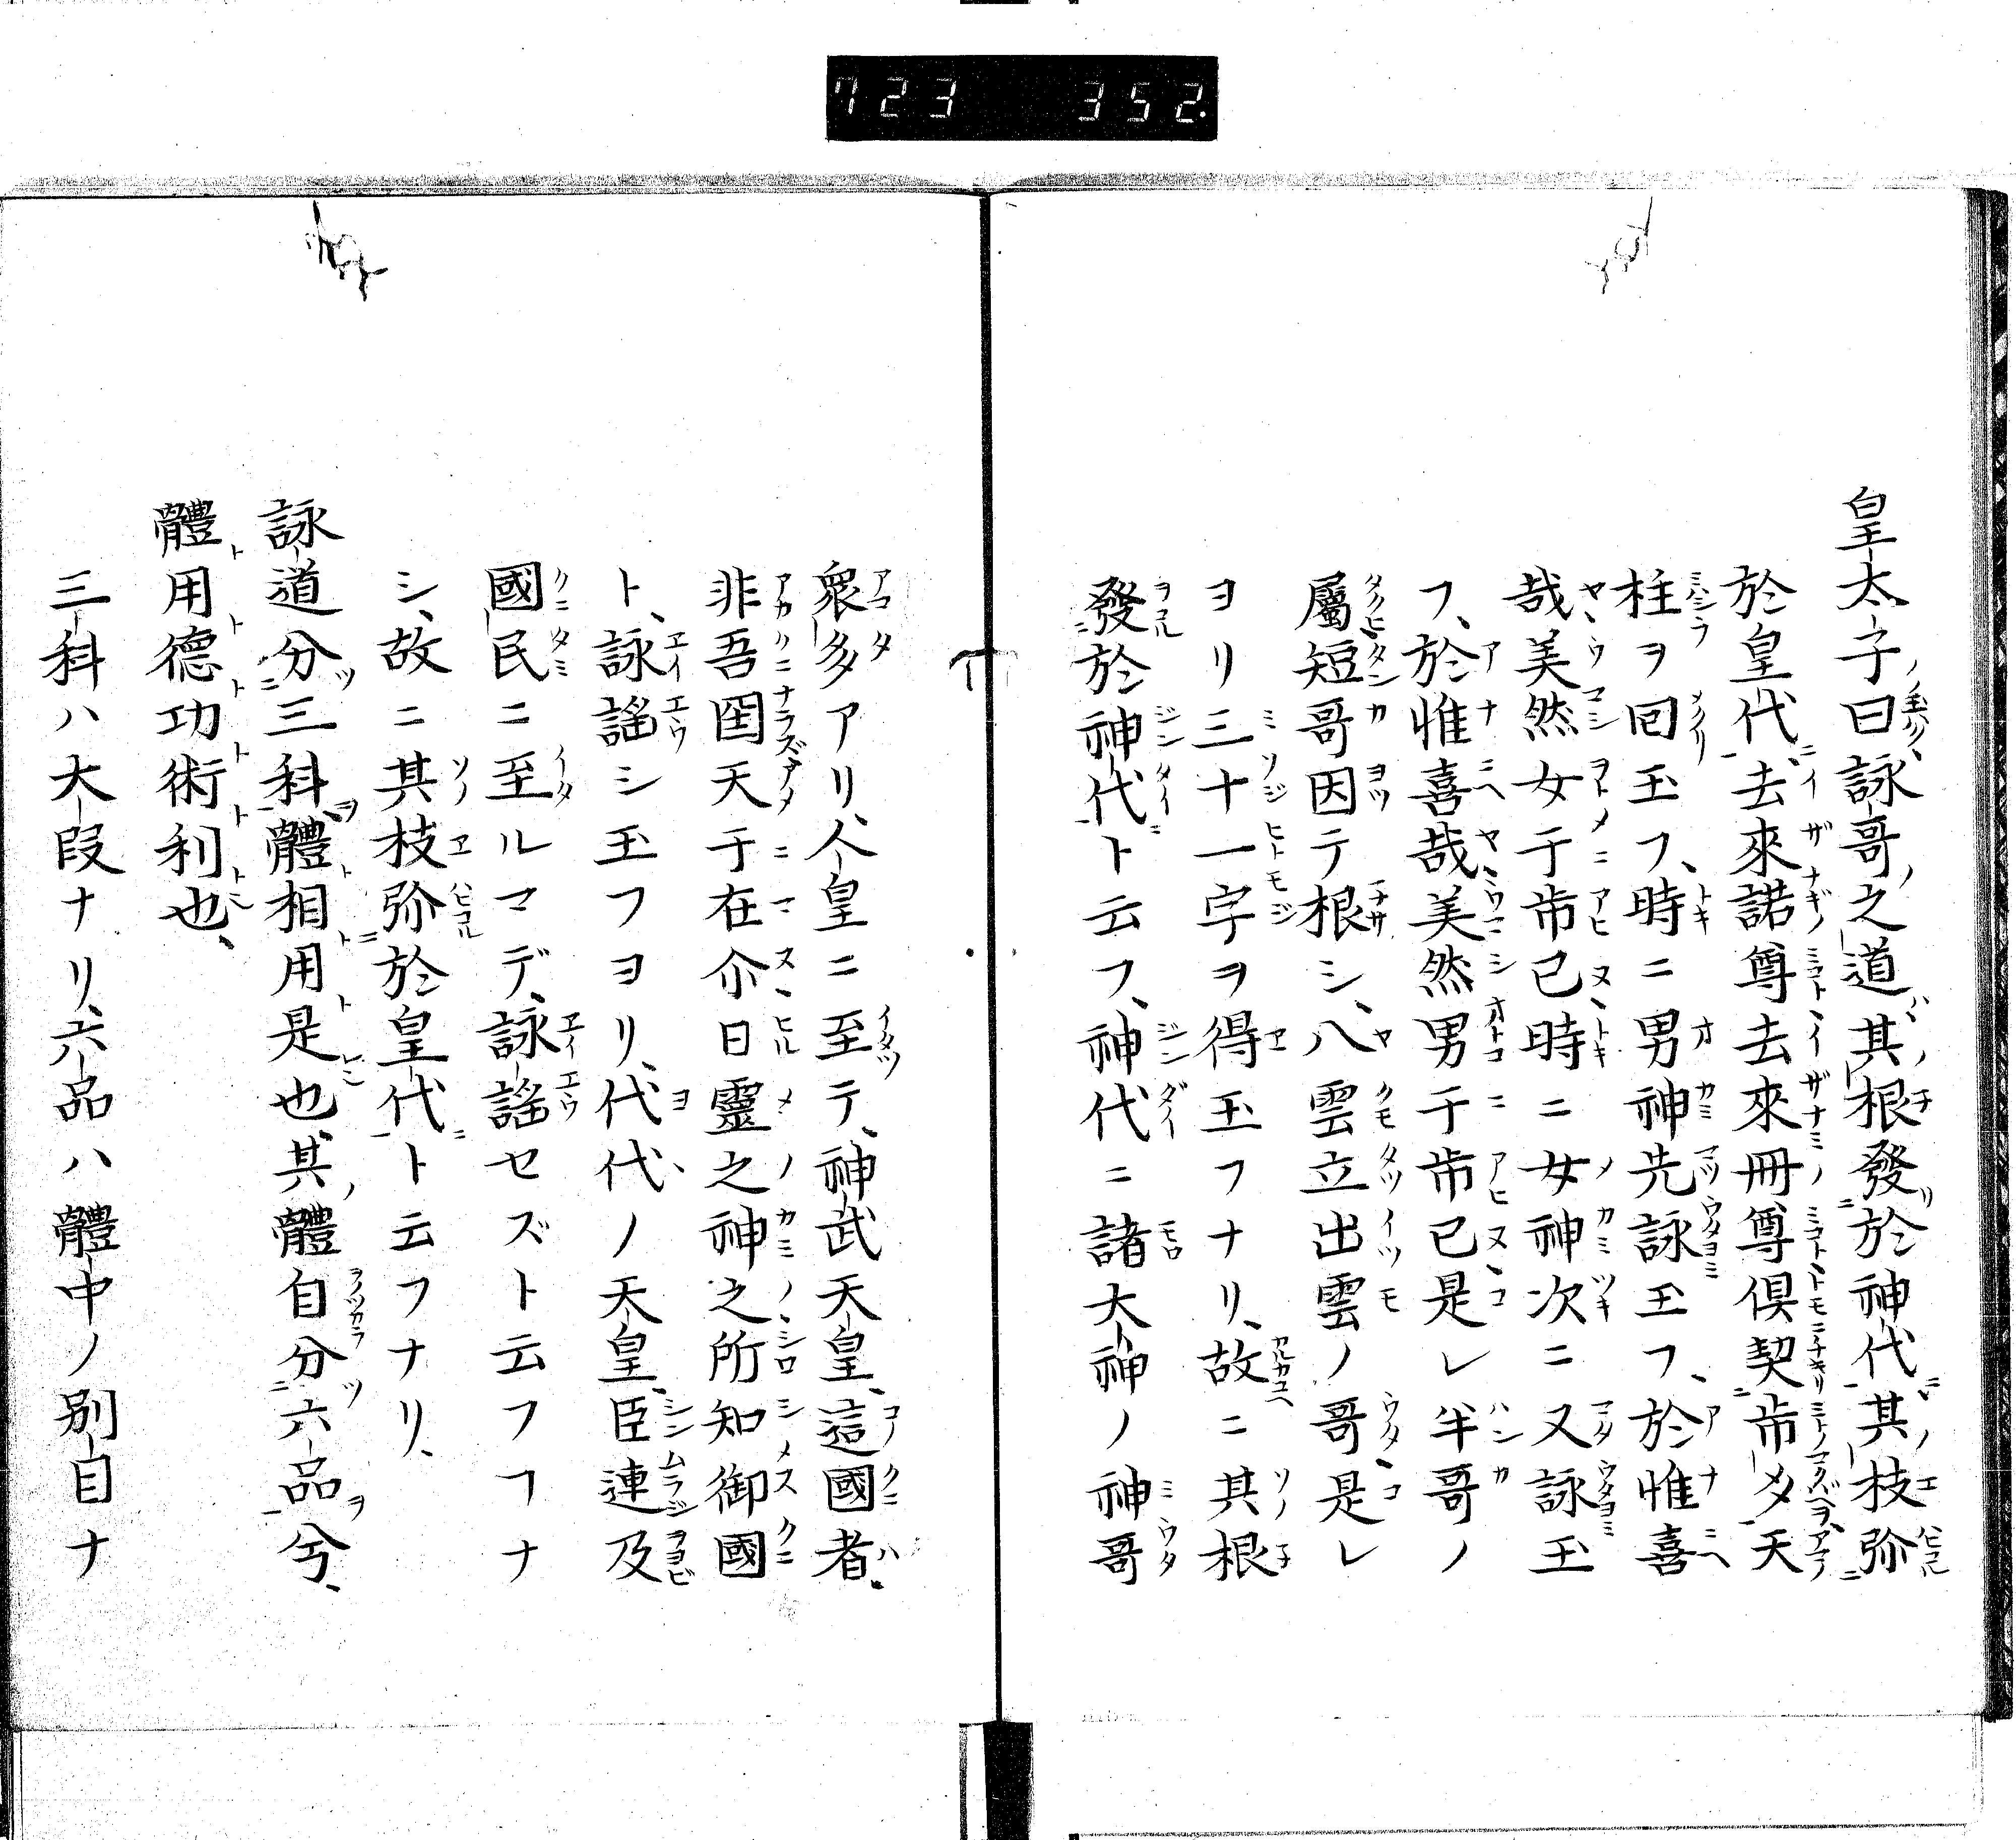 723 352.
皇太子曰詠哥之道其根發於神代其枝弥
於皇代去來諾尊去來冊尊倶契市目天
柱ヲ囘玉フ、時ニ男神先詠玉フ、於惟喜
哉美然女于市已時ニ女神次ニ又詠玉
フ、於惟喜哉美然男于市已是レ半哥ノ
屬短哥因テ根シ、八雲立出雲ノ哥是レ
ヨリ三十一字ヲ得玉フナリ、故ニ其根
發於神代ト云フ、神代ニ諸大神ノ神哥
衆多アリ、人皇ニ至テ、神武天皇、這國者、
非吾国天于在尒日靈之神之所知御國
ト、詠謡シ玉フヨリ、代代ノ天皇、臣連及
國民ニ至ルマデ、詠謡セズト云フフナ
シ、故ニ其枝弥於皇代ト云フナリ、
詠道分三科、體相用是也、其體自分六品兮、
體用德功術利也、
三科ハ大段ナリ、六品ハ體中ノ別目ナ